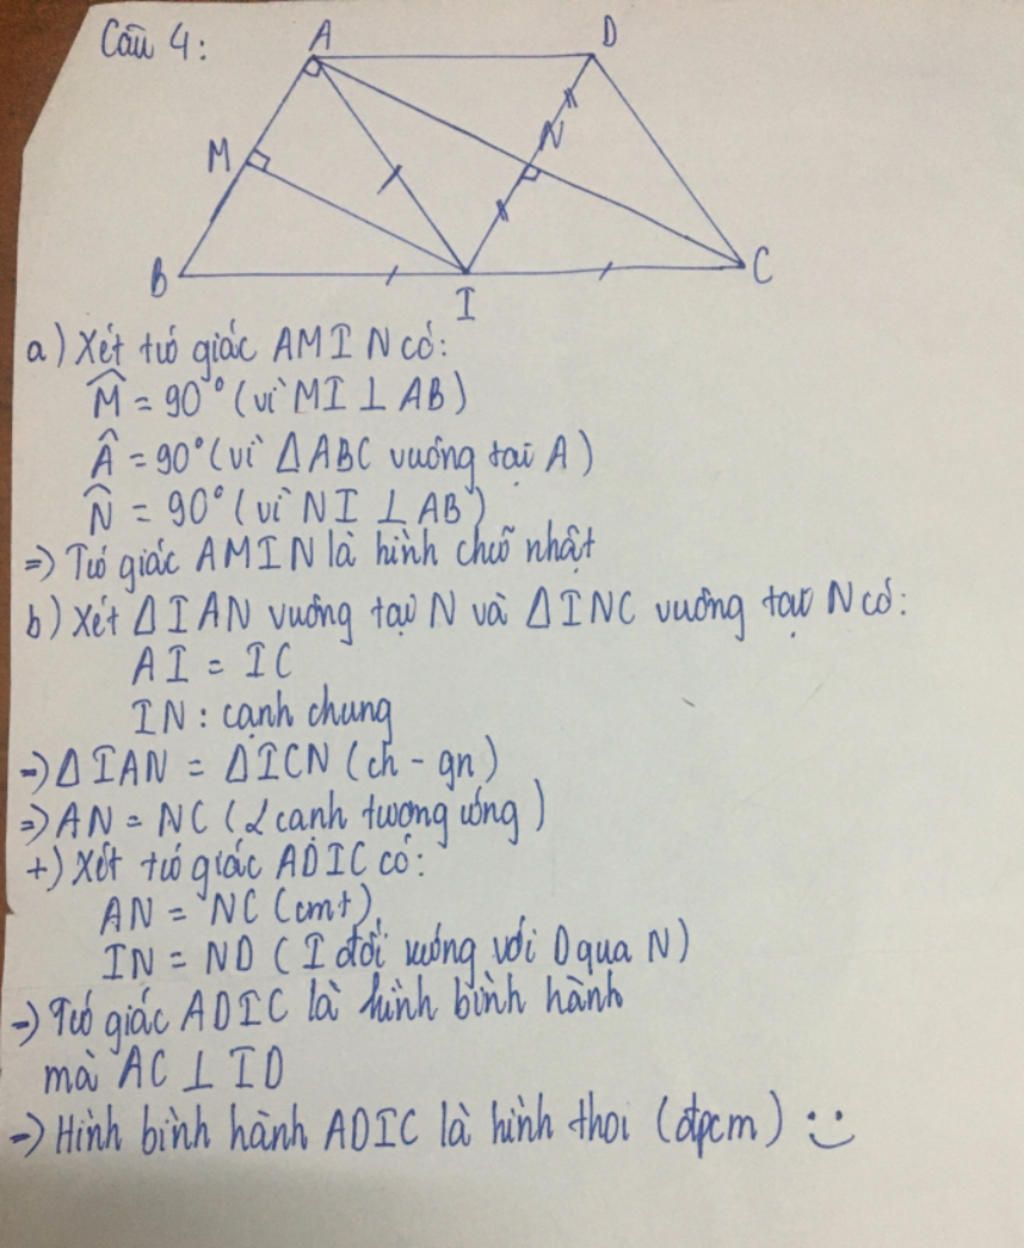 Câu 4:
A
D
M
N
B
I
C
a) Xét tứ giác AMIN có:
M̂ = 90° (vì MI ⊥ AB)
Â = 90° (vì ΔABC vuông tại A)
N̂ = 90° (vì NI ⊥ AB)
=> Tứ giác AMIN là hình chữ nhật
b) Xét ΔIAN vuông tại N và ΔINC vuông tại N có:
AI = IC
IN: cạnh chung
=> ΔIAN = ΔICN (ch - gn)
=> AN = NC (2 cạnh tương ứng)
+) Xét tứ giác ADIC có:
AN = NC (cmt)
IN = ND (I đối xứng với D qua N)
=> Tứ giác ADIC là hình bình hành
mà AC ⊥ ID
=> Hình bình hành ADIC là hình thoi (đpcm) :)